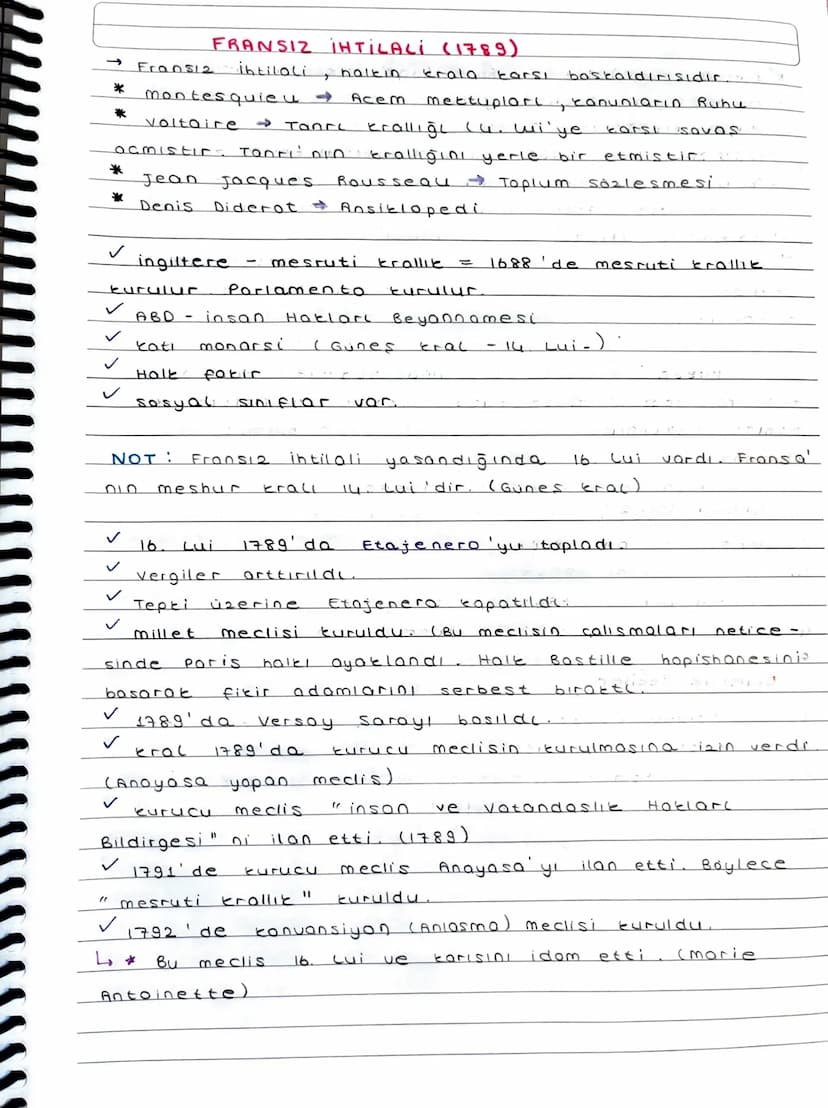 FRANSIZ İHTİLALİ (1789)
→ Fransız ihtilali, halkın krala karsı baskaldırısıdır.
* montesquieu → Acem mektupları, kanunların Ruhu
* Voltaire → Tanrı krallığı (4. Lui'ye karsı savas
acmıstır. Tanrı'nın krallığını yerle bir etmistir.
* Jean Jacques Rousseau → Toplum sözlesmesi
* Denis Diderot → Ansiklopedi
✓ ingiltere - mesruti krallık = 1688'de mesruti krallık
kurulur. Parlamento kurulur.
✓ ABD - insan Hakları Beyannamesi
✓ Katı monarsi (Gunes kral - 14. Lui-)
✓ Halk fakir
✓ sosyal sınıflar var.
NOT: Fransız ihtilali yasandığında 16. Lui vardı. Fransa'
nın meshur kralı 14. Lui'dir. (Gunes kral)
✓ 16. Lui 1789'da Etajenero'yu topladı.
✓ vergiler arttırıldı.
✓ Tepki üzerine Etajenera kapatıldı.
✓ millet meclisi kuruldu. (Bu meclisin calısmaları netice-
sinde Paris halkı ayaklandı. Halk Bastille hapishanesini
basarak fikir adamlarını serbest bıraktı.
✓ 1789'da Versay Sarayı basıldı.
✓ kral 1789'da kurucu meclisin kurulmasına izin verdi
(Anayasa yapan meclis)
✓ kurucu meclis "insan ve Vatandaslık Hakları
Bildirgesi" ni ilan etti. (1789)
✓ 1791'de kurucu meclis Anayasa'yı ilan etti. Böylece
"mesruti krallık" kuruldu.
✓ 1792'de konvansiyon (Anlasma) meclisi kuruldu.
↳ * Bu meclis 16. Lui ve karısını idam etti. (marie
Antoinette)